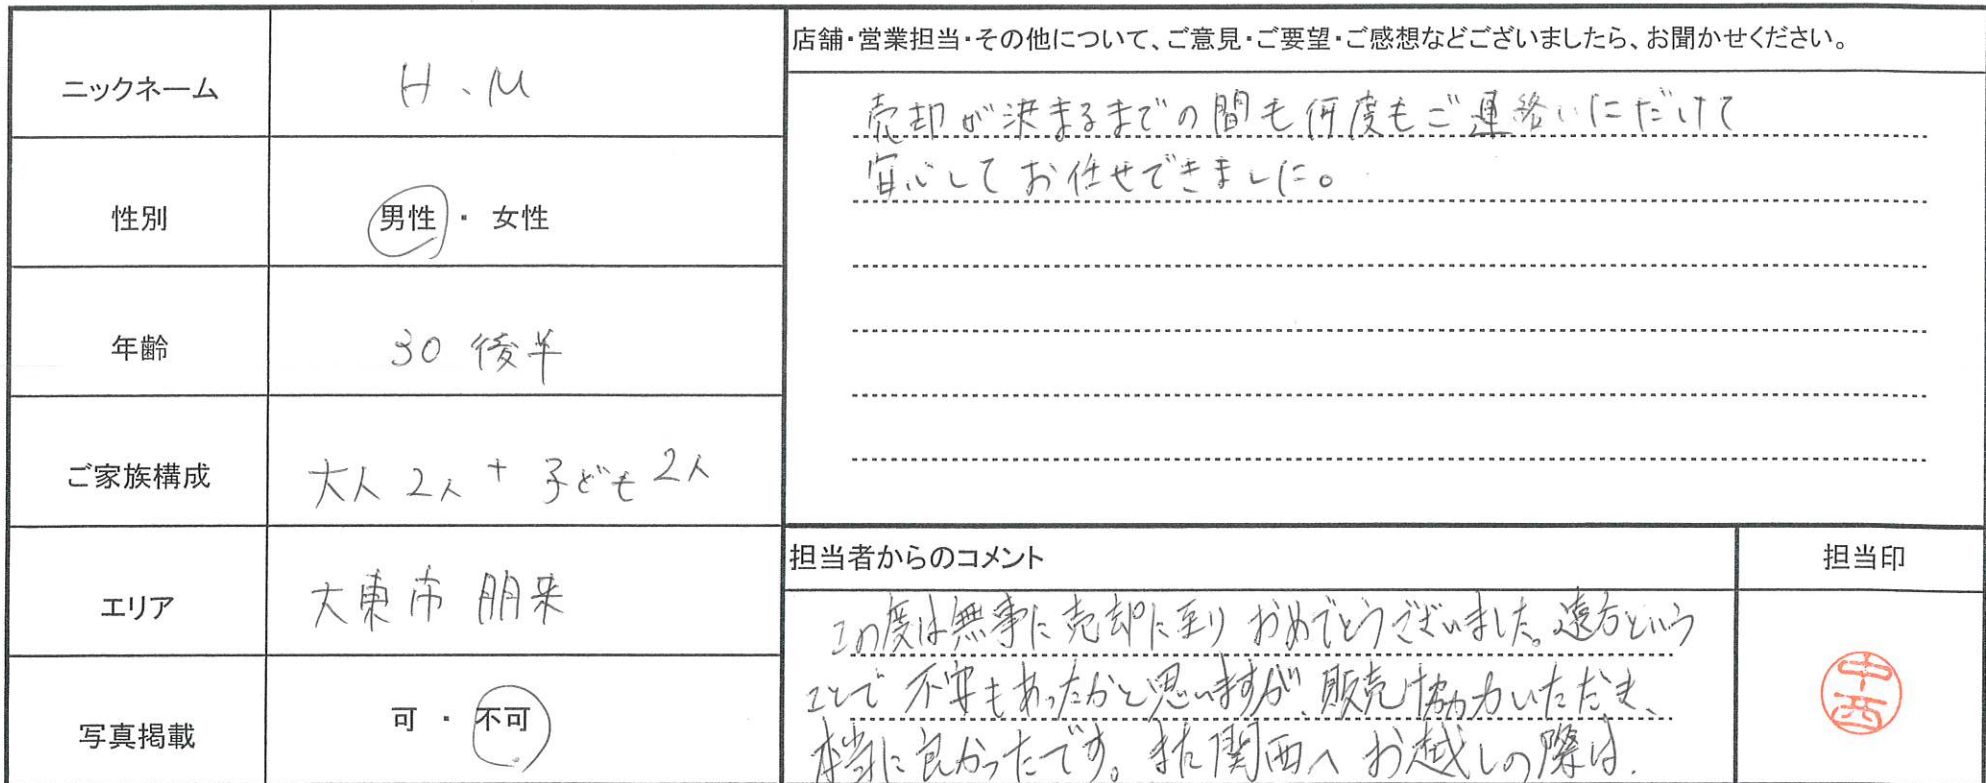 ニックネーム
H、M
性別
男性 ・ 女性
年齢
30 後半
ご家族構成
大人 2人 + 子ども 2人
エリア
大東市 朋来
写真掲載
可 ・ 不可
店舗・営業担当・その他について、ご意見・ご要望・ご感想などございましたら、お聞かせください。
売却が決まるまでの間も何度もご連絡いただけて
安心してお任せできました。
担当者からのコメント
この度は無事に売却に至りおめでとうございました。遠方という
ことで不安もあったかと思いますが、販売に協力いただき、
本当に良かったです。また関西へお越しの際は、
担当印
中西